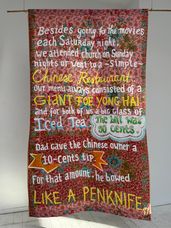 Besides going to the movies
each Saturday night,
we attended church on Sunday
nights or went to a -Simple-
Chinese Restaurant.
Our menu always consisted of a
GIANT FOE YONG HAI
and for both of us a big glass of
Iced Tea
The bill was
50 cents.
Dad gave the Chinese owner a
10-Cents tip.
For that amount, he bowed
LIKE A PENKNIFE.